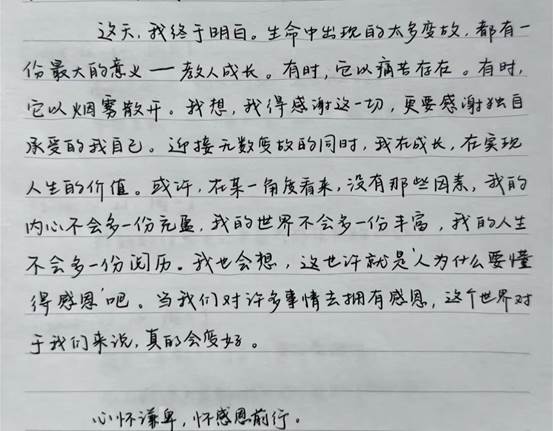 这天,我终于明白。生命中出现的太多变故,都有一
份最大的意义一教人成长。有时,它以痛苦存在。有时,
它以烟雾散开。我想,我得感谢这一切,更要感谢独自
承受的我自己。迎接无数变故的同时,我在成长,在实现
人生的价值。或许,在某一角度看来,没有那些因素,我的
内心不会多一份充盈,我的世界不会多一份丰富,我的人生
不会多一份阅历。我也会想,这也许就是‘人为什么要懂
得感恩’吧。当我们对许多事情去拥有感恩,这个世界对
于我们来说,真的会变好。
心怀谦卑,怀感恩前行。